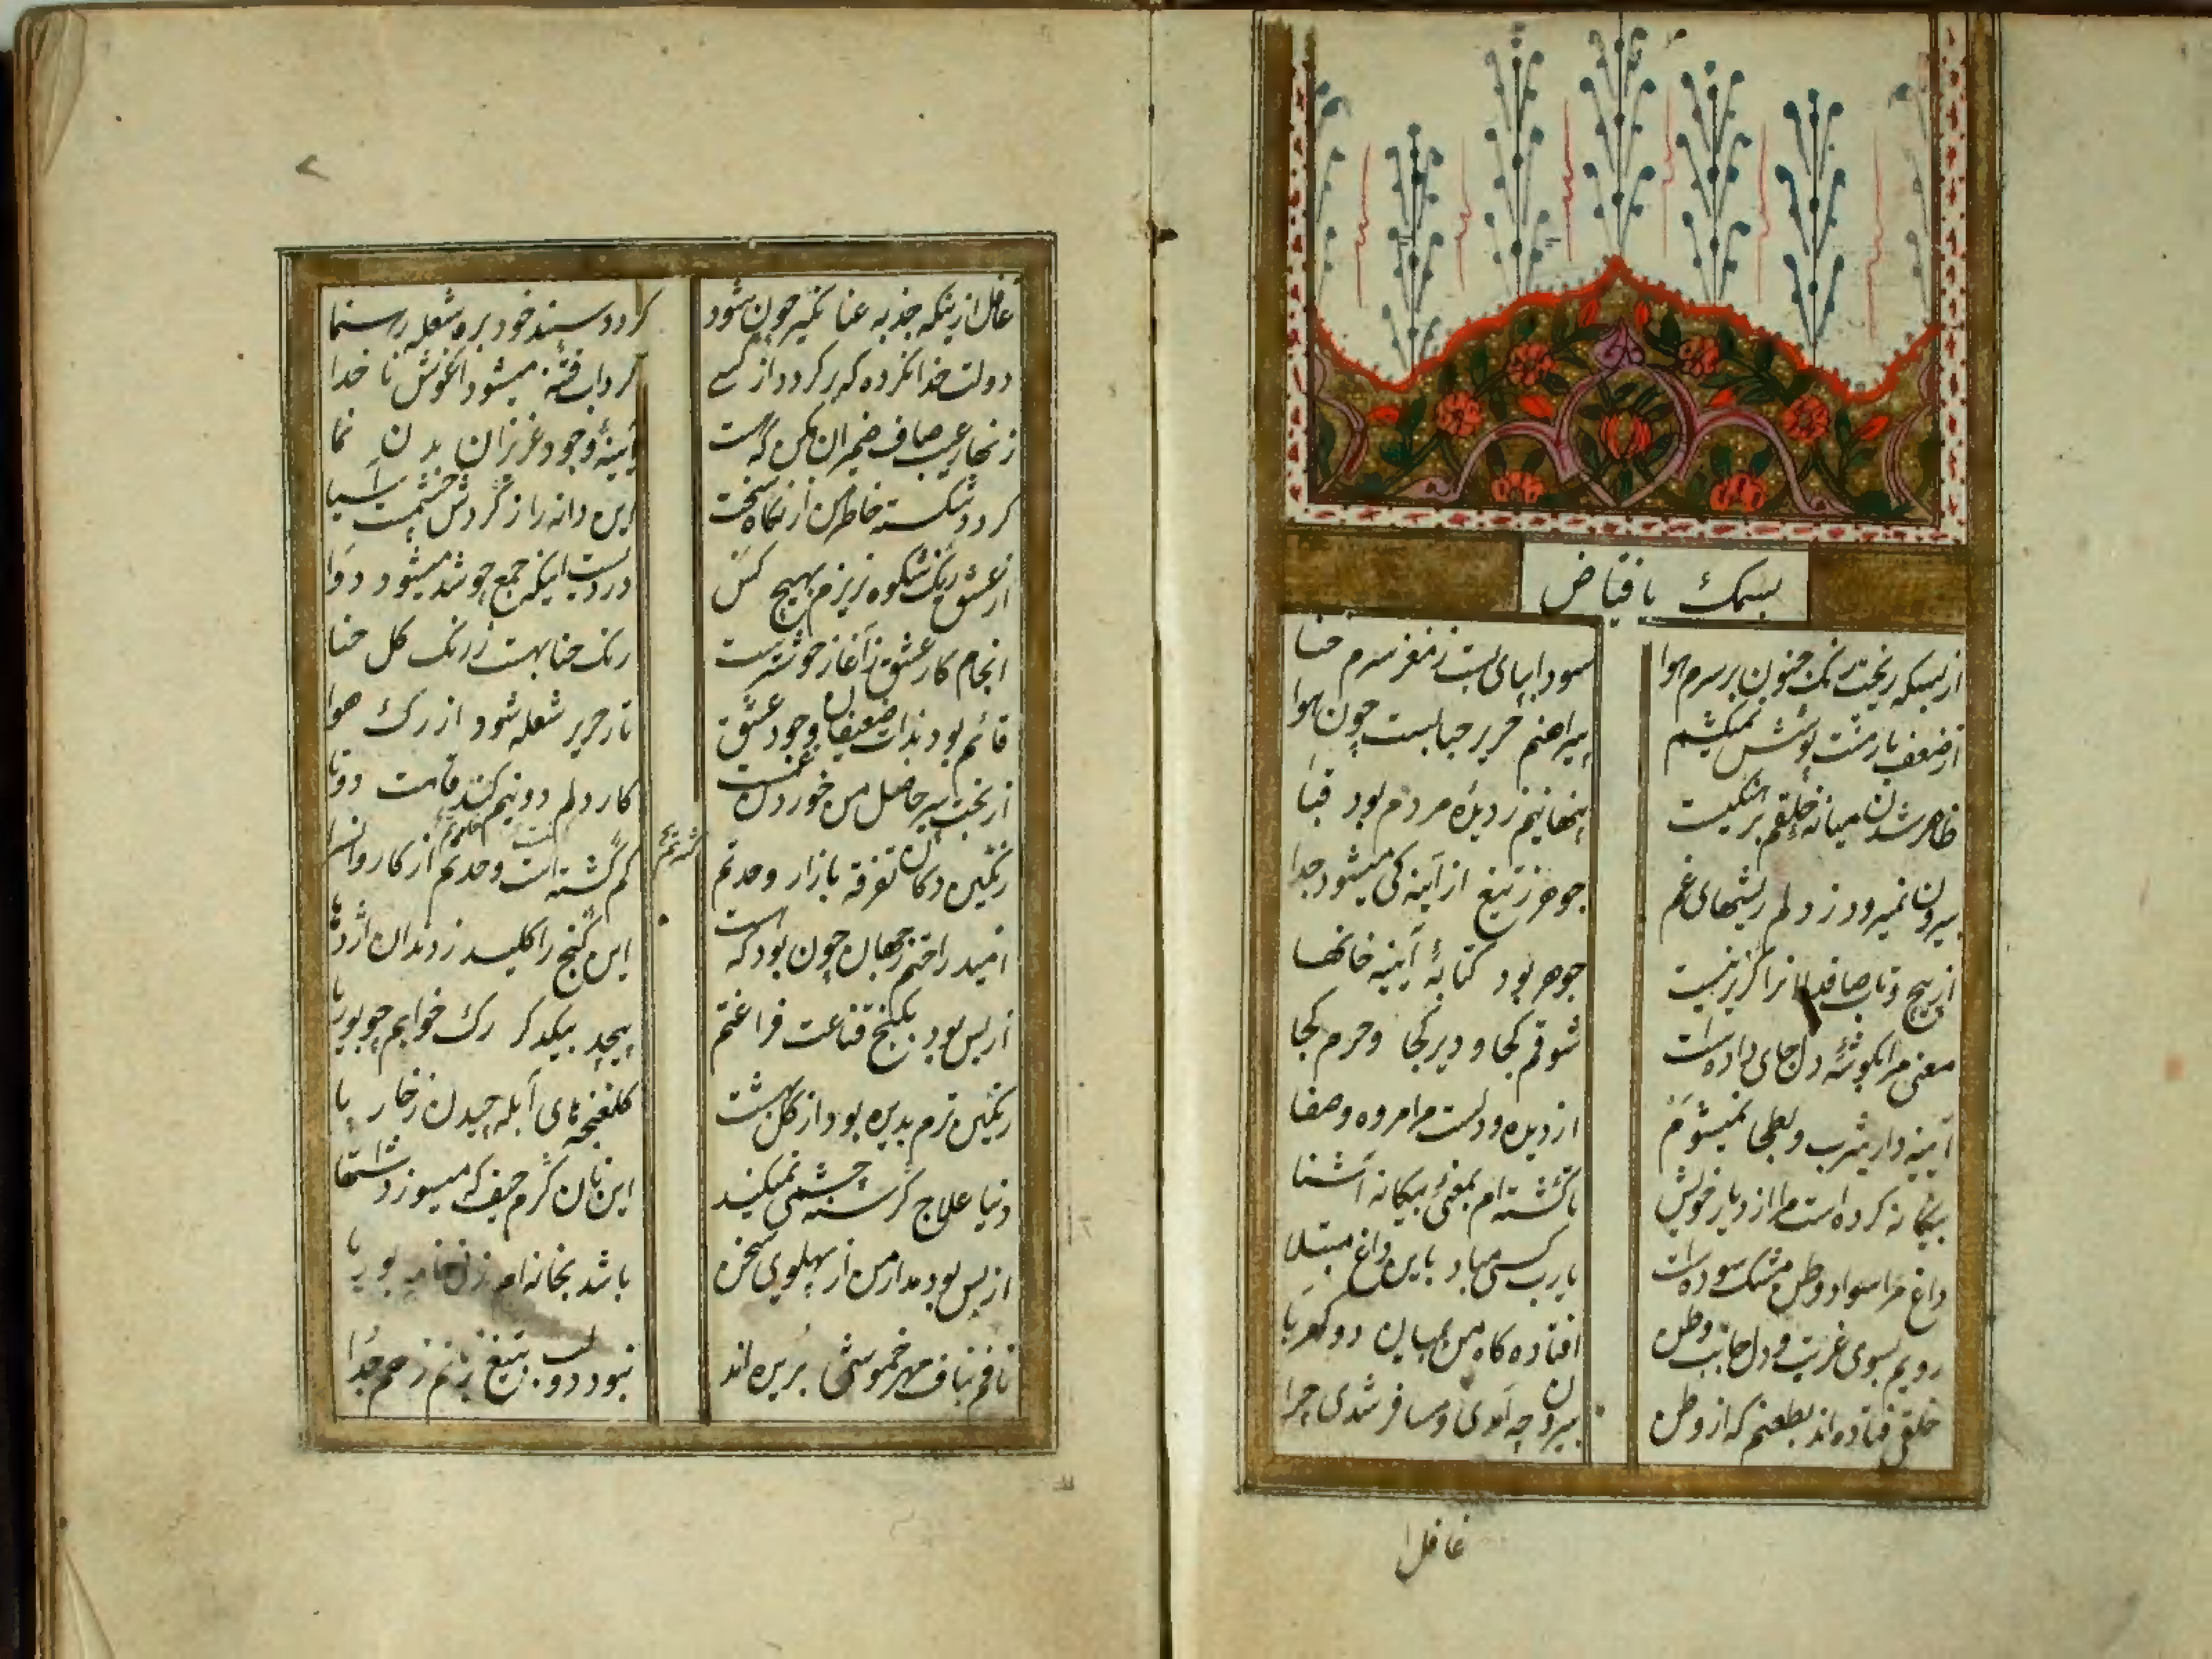 بسمک یا فیاض
از بسکه ریخت رنگ جنون بر سرم هوا
سودا بپای بست ز مغز سرم حنا
از ضعف بار منت پوشش نمیکشم
پیراهنم حریر حبابست چون هوا
ظاهر شدن میانه خلقم برهنگیست
پنهانیم ز دیده مردم بود قبا
بیرون نمیرود ز دلم ریشهای غم
جوهر ز تیغ از آینه کی میشود جدا
از پیچ و تاب صافدلانرا گزیر نیست
جوهر بود کتابهٔ آیینه خانها
معنی مرا بگوشهٔ دل جای داده است
شوقم کجا و دیر کجا و حرم کجا
آیینه دار یثرب و بطحا نمیشوم
از دیده و دلست مرا مروه و صفا
بیگانه کرده است مرا از دیار خویش
تا گشته ام بمعنی بیگانه آشنا
داغ مرا سواد وطن مشک سوده است
یارب کسی مباد باین داغ مبتلا
رویم بسوی غربت و دل جانب وطن
افتاده کاه من بمیان دو کهربا
خلقی فتاده اند بطعنم که از وطن
بیرون چه آمدی و مسافر شدی چرا
غافل ا
غافل ازینکه جذبه عنانگیر چون شود
گردد سپند خود بره شعله رهنما
دولت خدا نکرده که برگردد از کسی
گرداب فتنه میشود آغوش ناخدا
زنگار عیب صاف ضمیران مکن که هست
آیینهٔ وجود عزیزان بدن نما
گردد شکسته خاطر من از نگاه سخت
این دانه را ز گردش چشمست آسیا
از عشق رنگ شکوه نریزم بهیچ کس
دردست اینکه جمع چو شد میشود دوا
انجام کار عشق ز آغاز خوشترست
رنگ حنا بهست ز رنگ گل حنا
قائم بود بذات ضعیفان وجود عشق
تار حریر شعله شود از رگ هوا
از بخت تیره حاصل من خوردن غمست
کار دلم دو نیم کند قامت دوتا
رنگین دکان تفرقه بازار وحدتم
گم گشته است وحدتم از کاروانسرا
امید راحتم ز جهان چون بود که هست
این گنج را کلید ز دندان اژدها
از بس بود بکنج قناعت فراغتم
پیچد بیکدگر رگ خوابم چو بوریا
رنگین ترم بدیده بود از گل بهشت
گلغنچهٔ های آبله چیدن ز خار پا
دنیا علاج گرسنه چشمی نمیکند
این نان گرم حیف که میسوزد اشتها
از بس بود مدار من از پهلوی سخن
باشد بخانه ام بوریا
نافم بناف مهر خموشی بریده اند
نبود دو لب بتیغ زنم زخم جدا